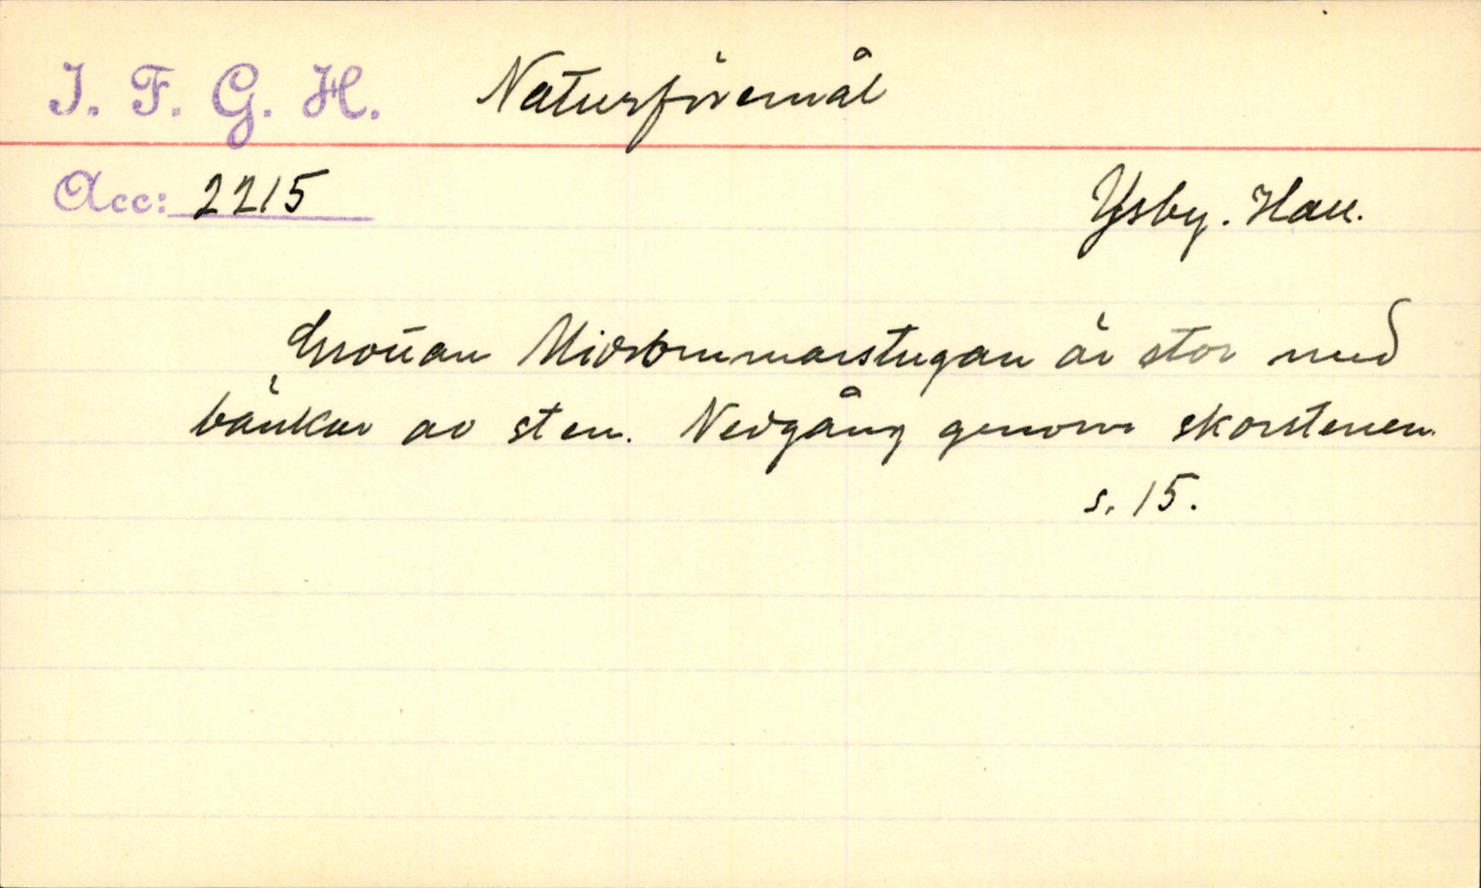 I. F. G. H. Naturföremål
Acc: 2215
Ysby. Hall.
Grottan Midsommarstugan är stor med
bänkar av sten. Nedgång genom skorstenen.
s. 15.